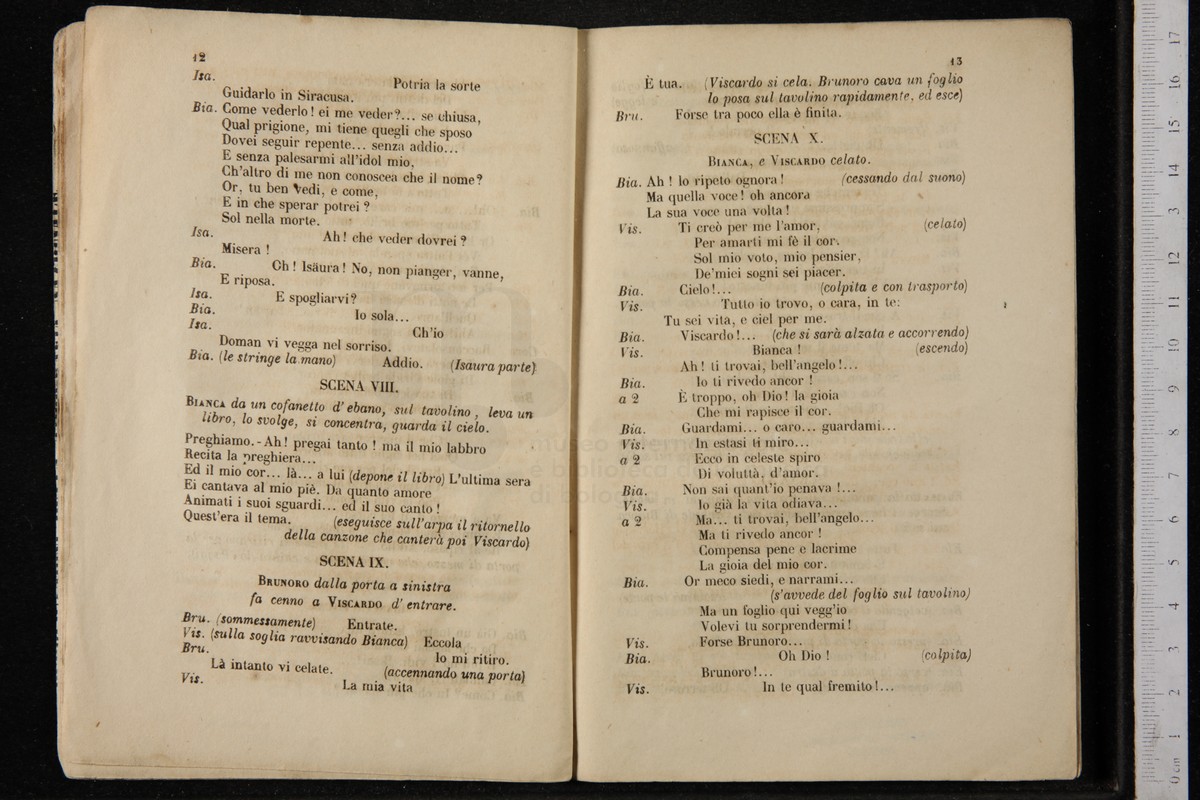 12
Isa. Potria la sorte
Guidarlo in Siracusa.
Bia. Come vederlo! ei me veder?... se chiusa,
Qual prigione, mi tiene quegli che sposo
Dovei seguir repente... senza addio...
E senza palesarmi all'idol mio,
Ch'altro di me non conoscea che il nome?
Or, tu ben vedi, e come,
E in che sperar potrei ?
Sol nella morte.
Isa. Ah! che veder dovrei ?
Misera !
Bia. Oh ! Isäura! No, non pianger, vanne,
E riposa.
Isa. E spogliarvi?
Bia. Io sola...
Isa. Ch'io
Doman vi vegga nel sorriso.
Bia. (le stringe la mano) Addio. (Isaura parte)
SCENA VIII.
BIANCA da un cofanetto d'ebano, sul tavolino, leva un
libro, lo svolge, si concentra, guarda il cielo.
Preghiamo. - Ah! pregai tanto ! ma il mio labbro
Recita la preghiera...
Ed il mio cor... là... a lui (depone il libro) L'ultima sera
Ei cantava al mio piè. Da quanto amore
Animati i suoi sguardi... ed il suo canto !
Quest'era il tema. (eseguisce sull'arpa il ritornello
della canzone che canterà poi Viscardo)
SCENA IX.
BRUNORO dalla porta a sinistra
fa cenno a VISCARDO d'entrare.
Bru. (sommessamente) Entrate.
Vis. (sulla soglia ravvisando Bianca) Eccola
Bru. Io mi ritiro.
Là intanto vi celate. (accennando una porta)
Vis. La mia vita
13
È tua. (Viscardo si cela. Brunoro cava un foglio
lo posa sul tavolino rapidamente, ed esce)
Bru. Forse tra poco ella è finita.
SCENA X.
BIANCA, e VISCARDO celato.
Bia. Ah ! lo ripeto ognora ! (cessando dal suono)
Ma quella voce! oh ancora
La sua voce una volta !
Vis. Ti creò per me l'amor, (celato)
Per amarti mi fè il cor.
Sol mio voto, mio pensier,
De'miei sogni sei piacer.
Bia. Cielo!... (colpita e con trasporto)
Vis. Tutto io trovo, o cara, in te:
Tu sei vita, e ciel per me.
Bia. Viscardo!... (che si sarà alzata e accorrendo)
Vis. Bianca ! (escendo)
Ah! ti trovai, bell'angelo!...
Bia. Io ti rivedo ancor !
a 2 È troppo, oh Dio! la gioia
Che mi rapisce il cor.
Bia. Guardami... o caro... guardami...
Vis. In estasi ti miro...
a 2 Ecco in celeste spiro
Di voluttà, d'amor.
Bia. Non sai quant'io penava !...
Vis. Io già la vita odiava...
a 2 Ma... ti trovai, bell'angelo...
Ma ti rivedo ancor !
Compensa pene e lacrime
La gioia del mio cor.
Bia. Or meco siedi, e narrami...
(s'avvede del foglio sul tavolino)
Ma un foglio qui vegg'io
Volevi tu sorprendermi!
Vis. Forse Brunoro...
Bia. Oh Dio ! (colpita)
Brunoro!...
Vis. In te qual fremito!...